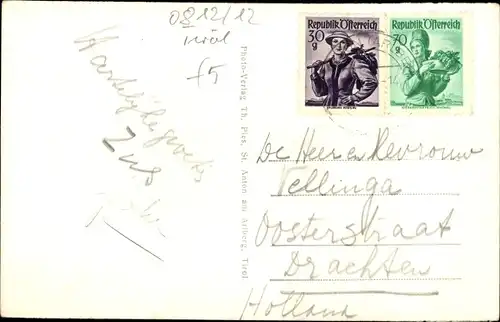 0812/12
Tirol
f5
Hartelijke groeten
Zus
Republik Österreich
30
g
Republik Österreich
70
g
Photo-Verlag Th. Pics, St. Anton am Arlberg, Tirol
De Heer en Mevrouw
Tellinga
Oosterstraat
Drachten
Holland